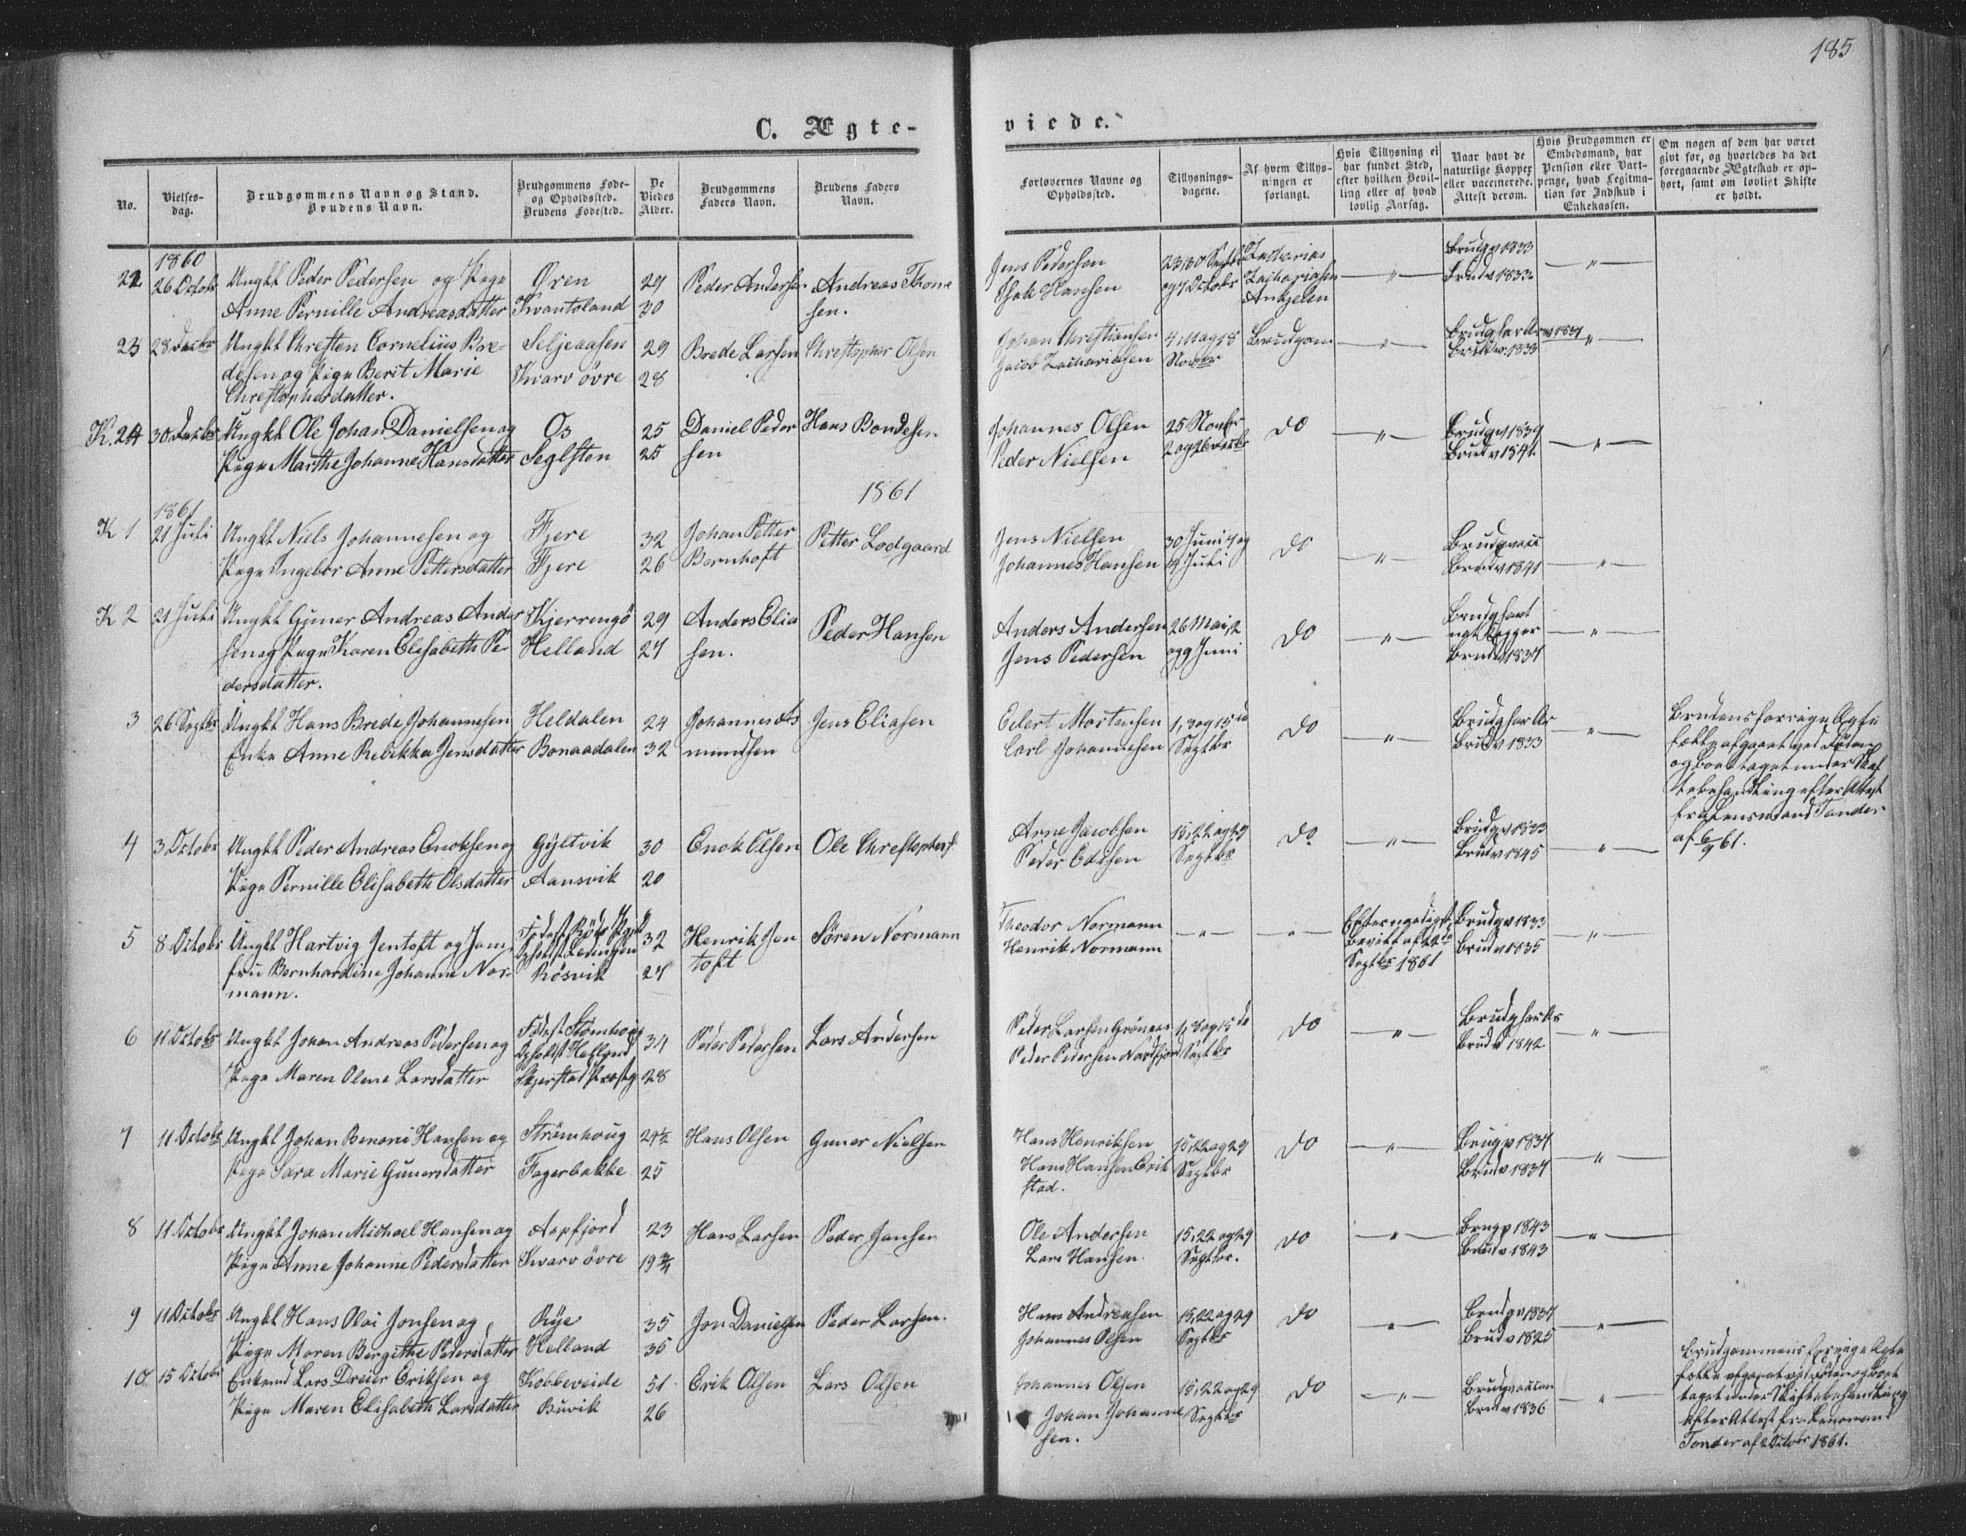 185
C. Ægte-
viede.
No.
Vielses-
dag.
Brudgommens Navn og Stand.
Brudens Navn.
Brudgommens Føde-
og Opholdssted.
Brudens Fødested.
De
Viedes
Alder.
Brudgommens
Faders Navn.
Brudens Faders
Navn.
Forlovernes Navne og
Opholdssted.
Tillysnings-
dagene.
Af hvem Tillys-
ningen er
forlangt.
Hvis Tillysning ei
har fundet Sted,
efter hvilken Bevil-
ling eller af hvad
lovlig Aarsag.
Naar havt de
naturlige Kopper
eller vaccinerede.
Attest derom.
Hvis Brudgommen er
Embedsmand, har
Pension eller Vart-
penge, hvad Legitma-
tion for Indskud i
Enkekassen.
Om nogen af dem har været
givt før, og hvorledes da det
foregaaende Ægteskab er op-
hørt, samt om lovligt Skifte
er holdt.
1860
22 26 Octobr Ungkl Peder Pedersen og Pige Øren 29 Peder Andersen Andreas Thome
Anne Pernille Andreasdatter Kvantsland 30 sen.
Jens Pedersen 23 30 Septbr Zacharias Brudg v 1833
Isak Hansen og 7 Octobr Zachariasen Brud v 1833
23 28 Decbr Ungkl Chresten Cornelius Bre- Seljeaasen 29 Brede Larsen Chrestopher Olsen
desen og Pige Berit Marie Kvarv övre 28
Chrestophersdatter.
Johan Chrestiansen 4, 11 og 18 Brudgom
Jacob Zachariasen Novbr Brud v. 1833
K. 24 30 Decbr Ungkl Ole Johan Danielsen og Os 25 Daniel Peder Hans Bondesen
Pige Marthe Johanne Hansdatter Seglsten 25 sen
Johannes Olsen 25 Novbr do Brudg v 1839
Peder Nielsen 2 og Brud v 1841.
1861
1861
K 1 21 Juli Ungkl Niels Johannesen og Fjere 32 Johan Petter Petter Lodgaard
Pige Ingebor Anne Pettersdatter Fjere 26 Bernhoft
Jens Nielsen 30 Juni 7 og do
Johannes Hansen 14 Juli Brud v 1841
K 2 21 Juli Ungkl Guner Andreas Ander Kjerringö 29 Anders Elia Peder Hansen
sen og Pige Karen Elisabeth Pe- Helland 27 sen.
dersdatter.
Anders Andersen 26 Mai, 2 do Brudg havt
Jens Pedersen og 9 Juni nat Kopper
Brud v 1837
3 26 Septbr Ungkl Hans Brede Johannesen Heldalen 24 Johannes As Jens Eliasen
Enke Anne Rebekka Jensdatter Bonaadalen 32 mundsen
Edert Mortensen 1, 8 og 15de do Brudg har Ar
Carl Johannesen Septbr Brud v 1833
Brudens forrige Ægte
fælle afgaaet ved Döden
og Boet taget under Skif
tebehandling efter Attest
fra Lensmand Tander
af 6/9 61.
4 3 Octobr Ungkl Peder Andreas Enoksen og Gyltvik 30 Enok Olsen Ole Chrestophers
Pige Pernille Elisabeth Olsdatter Aansvik 20
Arne Jacobsen 15, 22 og 29 do Brudg v 1833
Peder Septbr Brud v 1845
5 8 Octobr Ungkl Hartvig Jentoft og Jom- 32 Henrik Jen Sören Normann
fru Bernhardine Johanne Nor- Rösvik 27 toft
mann.
Theodor Normann Brudg v 1833
Henrik Normann Bevill af 22de Brud v 1835
Septbr 1861
6 11 Octobr Ungkl Johan Andreas Pedersen og Födest Strömhoug 34 Peder Pedersen Lars Andersen
Opholdst Helland
Pige Maren Olene Larsdatter Skjerstad Præstg 28
Peder Larsen Grönaas 1, 8 og 15de do Brudg har Ar
Peder Pedersen Nordfjord Septbr Brud v 1842
7 11 Octobr Ungkl Johan Benoni Hansen og Strömhoug 24½ Hans Olsen Guner Nielsen
Pige Sara Marie Gunersdatter Fagerbakke 25
Hans Henriksen 15, 22 og 29 do Brudg v 1837
Hans Hansen Erik Septbr Brud v 1837
stad.
8 11 Octobr Ungkl Johan Michael Hansen og Aapfjord 23 Hans Larsen Peder Jensen
Pige Anne Johanne Pedersdatter Kvarv övre 19¾
Ole Andersen 15, 22 og 29 do Brudg v 1843
Lars Hansen Septbr. Brud v 1843
9 11 Octobr Ungkl Hans Olai Jonsen og Röje 35 Jon Danielsen Peder Larsen.
Pige Maren Bergithe Pedersdatter Helland 35
Hans Andreasen 15, 22 og 29 do Brudg v 1837
Johannes Olsen Septbr Brud v 1825
10 15 Octobr Enkemd Lars Dreier Eriksen og Kobbeveide 51 Erik Olsen Lars Olsen
Pige Maren Elisabeth Larsdatter Buvik 26
Johannes Olsen 15, 22 og 29 do
Johan Johanne Septbr Brud v 1836
sen.
Brudgommens forrige Ægte
fælle afgaaet ved Döden og Boet
taget under Skiftebehandling
efter Attest fra Lensmand
Tander af 2 Octobr 1861.